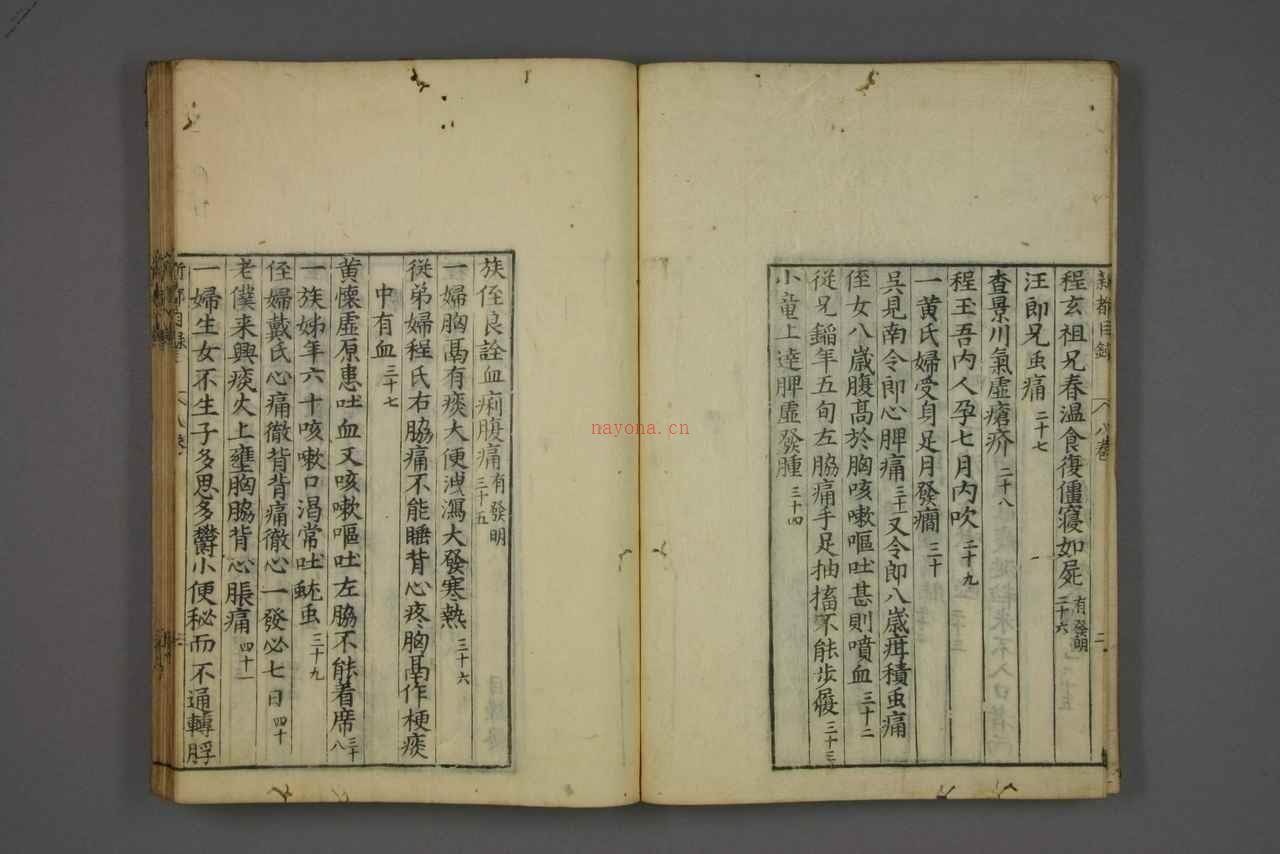 新都目錄 八卷 二
程玄祖兄春溫食復僵寢如屍 有發明 二十六
汪郎兄虫痛 二十七
查景川氣虛瘡疥 二十八
程玉吾內人孕七月內吹 二十九
一黃氏婦受身足月發癇 三十
吳見南令郎心脾痛 三十一 又令郎八歲疳積虫痛
侄女八歲腹髙於胸咳嗽嘔吐甚則噴血 三十二
從兄鎦年五旬左脇痛手足抽搐不能步履 三十三
小童上達脾虛發腫 三十四
族侄良詮血痢腹痛 有發明 三十五
一婦胸髙有痰大便洩瀉大發寒熱 三十六
從弟婦程氏右脇痛不能睡背心疼胸髙作梗痰
中有血 三十七
黃懷虛原患吐血又咳嗽嘔吐左脇不能着席 三十八
一族姊年六十咳嗽口渴常吐蚘虫 三十九
侄婦戴氏心痛徹背背痛徹心一發必七日 四十
老僕來興痰火上壅胸脇背心脹痛 四十一
一婦生女不生子多思多欝小便秘而不通轉脬
新都目錄 八卷
nayona.cn